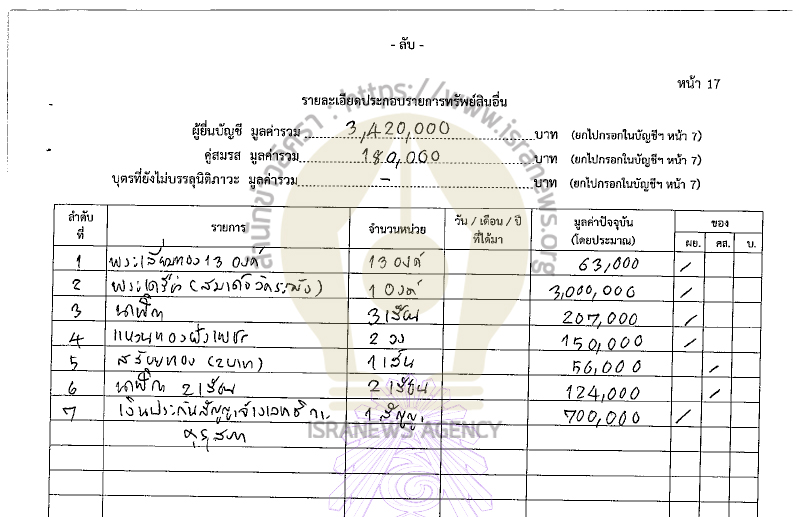 - ลับ -
หน้า 17
รายละเอียดประกอบรายการทรัพย์สินอื่น
ผู้ยื่นบัญชี มูลค่ารวม 3,420,000 บาท (ยกไปกรอกในบัญชีฯ หน้า 7)
คู่สมรส มูลค่ารวม 180,000 บาท (ยกไปกรอกในบัญชีฯ หน้า 7)
บุตรที่ยังไม่บรรลุนิติภาวะ มูลค่ารวม - บาท (ยกไปกรอกในบัญชีฯ หน้า 7)
ลำดับที่ รายการ จำนวนหน่วย วัน / เดือน / ปี ที่ได้มา มูลค่าปัจจุบัน (โดยประมาณ) ของ
ผย. คส. บ.
1 พระเลี่ยมทอง 13 องค์ 13 องค์ 63,000 /
2 พระเครื่อง 1 องค์ 3,000,000 /
3 นาฬิกา 3 เรือน 207,000 /
4 แหวนทองฝังเพชร 2 วง 150,000 /
5 สร้อยทอง (2บาท) 1 เส้น 56,000 /
6 นาฬิกา 2 เรือน 2 เรือน 124,000 /
7 เงินประกันสัญญาจ้างเลขาธิการ 1 สัญญา 700,000 /
คุรุสภา
สำนักข่าวอิศรา : https://www.isranews.org
ISRANEWS AGENCY